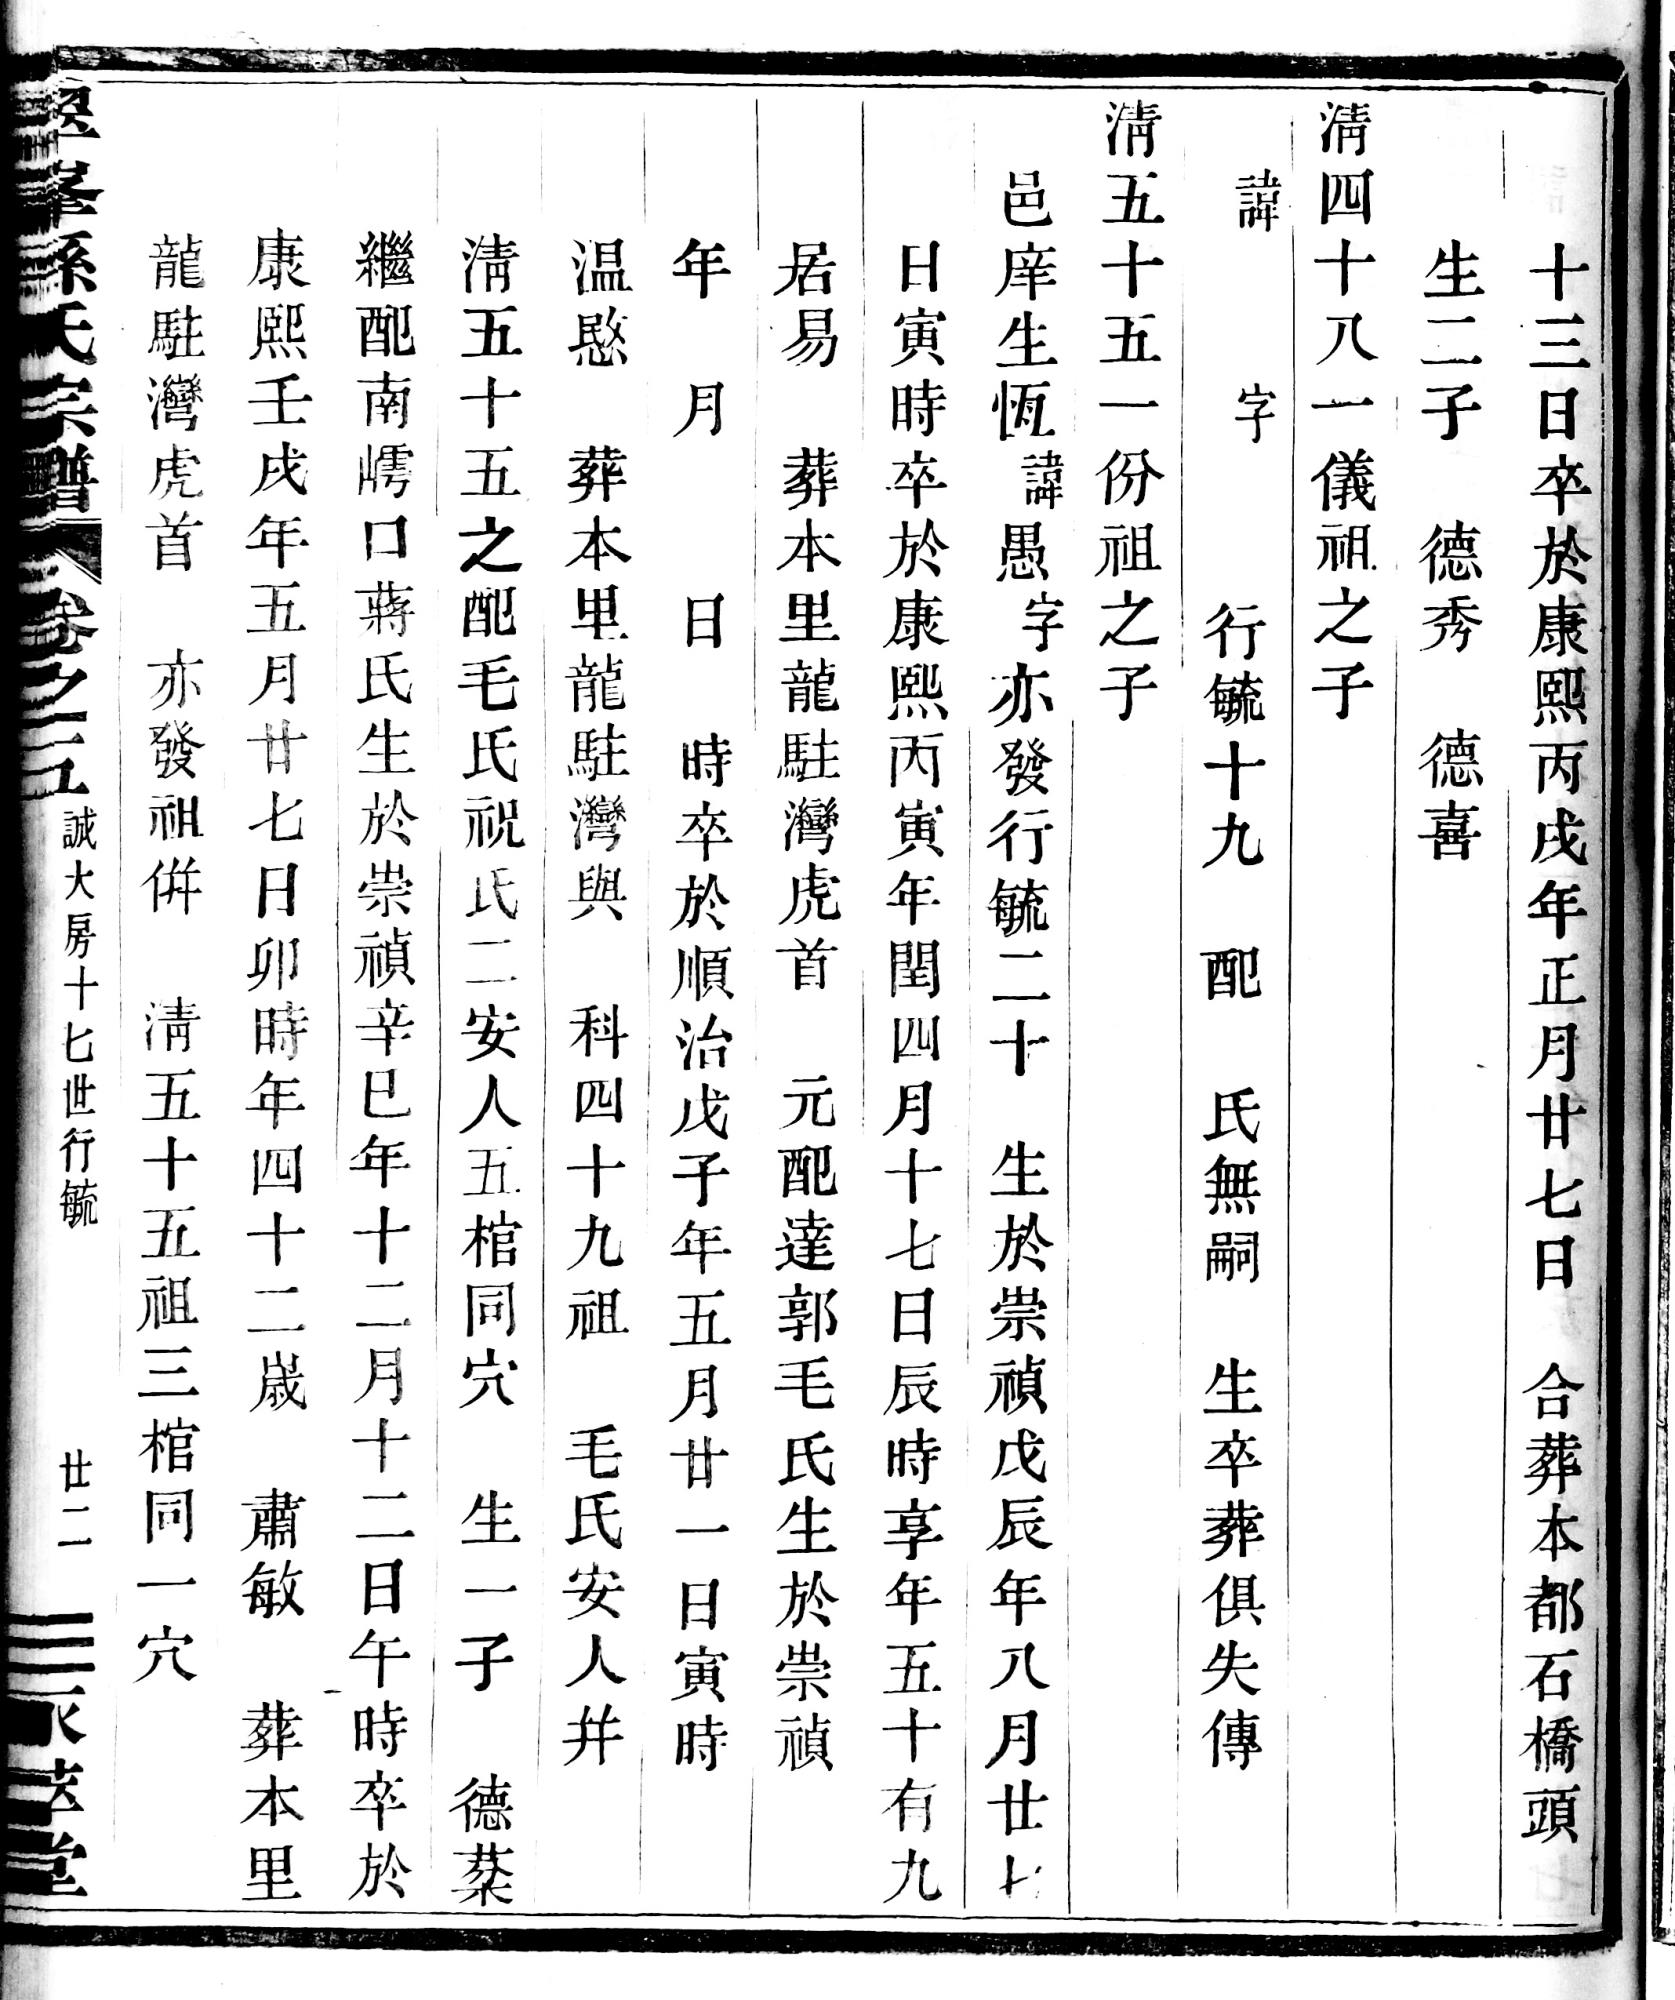 十三日卒於康熙丙戌年正月廿七日　合葬本都石橋頭
生二子　德秀　德喜
清四十八一儀祖之子
諱　字　行毓十九　配　氏無嗣　生卒葬俱失傳
清五十五一份祖之子
邑庠生恆諱愚字亦發行毓二十　生於崇禎戊辰年八月廿七
日寅時卒於康熙丙寅年閏四月十七日辰時享年五十有九
居易　葬本里龍駐灣虎首　元配達郭毛氏生於崇禎
年　月　日　時卒於順治戊子年五月廿一日寅時
温愍　葬本里龍駐灣與　科四十九祖　毛氏安人并
清五十五之配毛氏祝氏二安人五棺同穴　生一子　德棻
繼配南嶀口蔣氏生於崇禎辛巳年十二月十二日午時卒於
康熙壬戌年五月廿七日卯時年四十二歲　肅敏　葬本里
龍駐灣虎首　亦發祖併　清五十五祖三棺同一穴
孫氏宗譜　卷之五　誠大房十七世行毓　廿二　萃堂